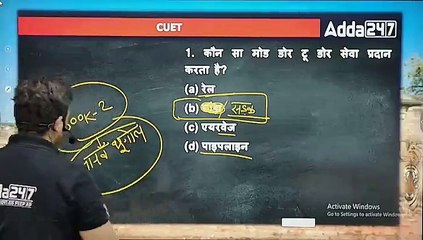 CUET
Adda247
1. कौन सा मोड डोर टू डोर सेवा प्रदान
करता है?
(a) रेल
(b) सड़क
(c) एयरवेज
(d) पाइपलाइन
BOOK-2
मानव भूगोल
Activate Windows
Go to Settings to activate Windows.
dda247